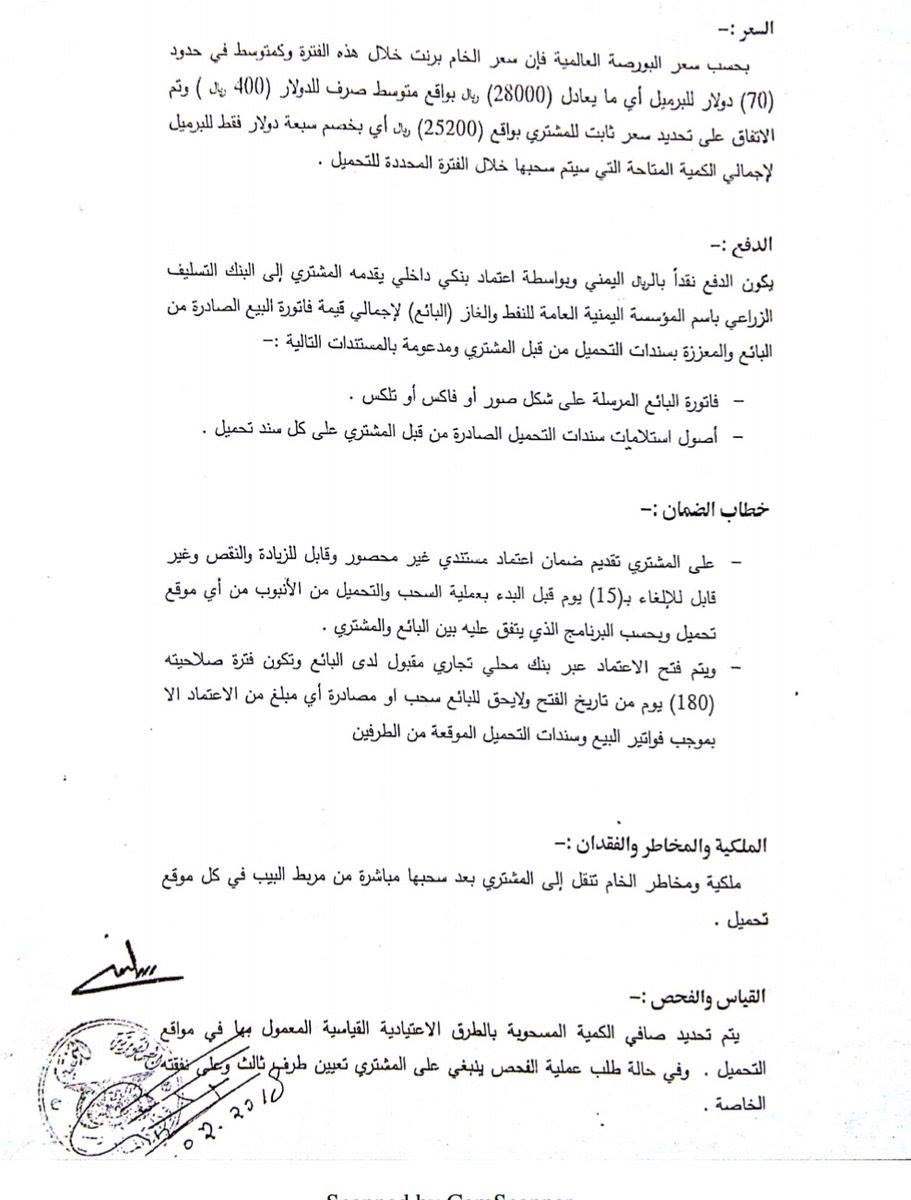 السعر :-
بحسب سعر البورصة العالمية فإن سعر الخام برنت خلال هذه الفترة وكمتوسط في حدود
(70) دولار للبرميل أي ما يعادل (28000) ريال بواقع متوسط صرف للدولار (400 ريال ) وتم
الاتفاق على تحديد سعر ثابت للمشتري بواقع (25200) ريال أي بخصم سبعة دولار فقط للبرميل
لإجمالي الكمية المتاحة التي سيتم سحبها خلال الفترة المحددة للتحميل .
الدفع :-
يكون الدفع نقداً بالريال اليمني وبواسطة اعتماد بنكي داخلي يقدمه المشتري إلى البنك التسليف
الزراعي باسم المؤسسة اليمنية العامة للنفط والغاز (البائع) لإجمالي قيمة فاتورة البيع الصادرة من
البائع والمعززة بسندات التحميل من قبل المشتري ومدعومة بالمستندات التالية :-
- فاتورة البائع المرسلة على شكل صور أو فاكس أو تلكس .
- أصول استلامات سندات التحميل الصادرة من قبل المشتري على كل سند تحميل .
خطاب الضمان :-
- على المشتري تقديم ضمان اعتماد مستندي غير محصور وقابل للزيادة والنقص وغير
قابل للإلغاء بـ(15) يوم قبل البدء بعملية السحب والتحميل من الأنبوب من أي موقع
تحميل وبحسب البرنامج الذي يتفق عليه بين البائع والمشتري .
- ويتم فتح الاعتماد عبر بنك محلي تجاري مقبول لدى البائع وتكون فترة صلاحيته
(180) يوم من تاريخ الفتح ولايحق للبائع سحب او مصادرة أي مبلغ من الاعتماد الا
بموجب فواتير البيع وسندات التحميل الموقعة من الطرفين
الملكية والمخاطر والفقدان :-
ملكية ومخاطر الخام تنتقل إلى المشتري بعد سحبها مباشرة من مربط البيب في كل موقع
تحميل .
القياس والفحص :-
يتم تحديد صافي الكمية المسحوبة بالطرق الاعتيادية القياسية المعمول بها في مواقع
التحميل . وفي حالة طلب عملية الفحص ينبغي على المشتري تعيين طرف ثالث وعلى نفقته
الخاصة .